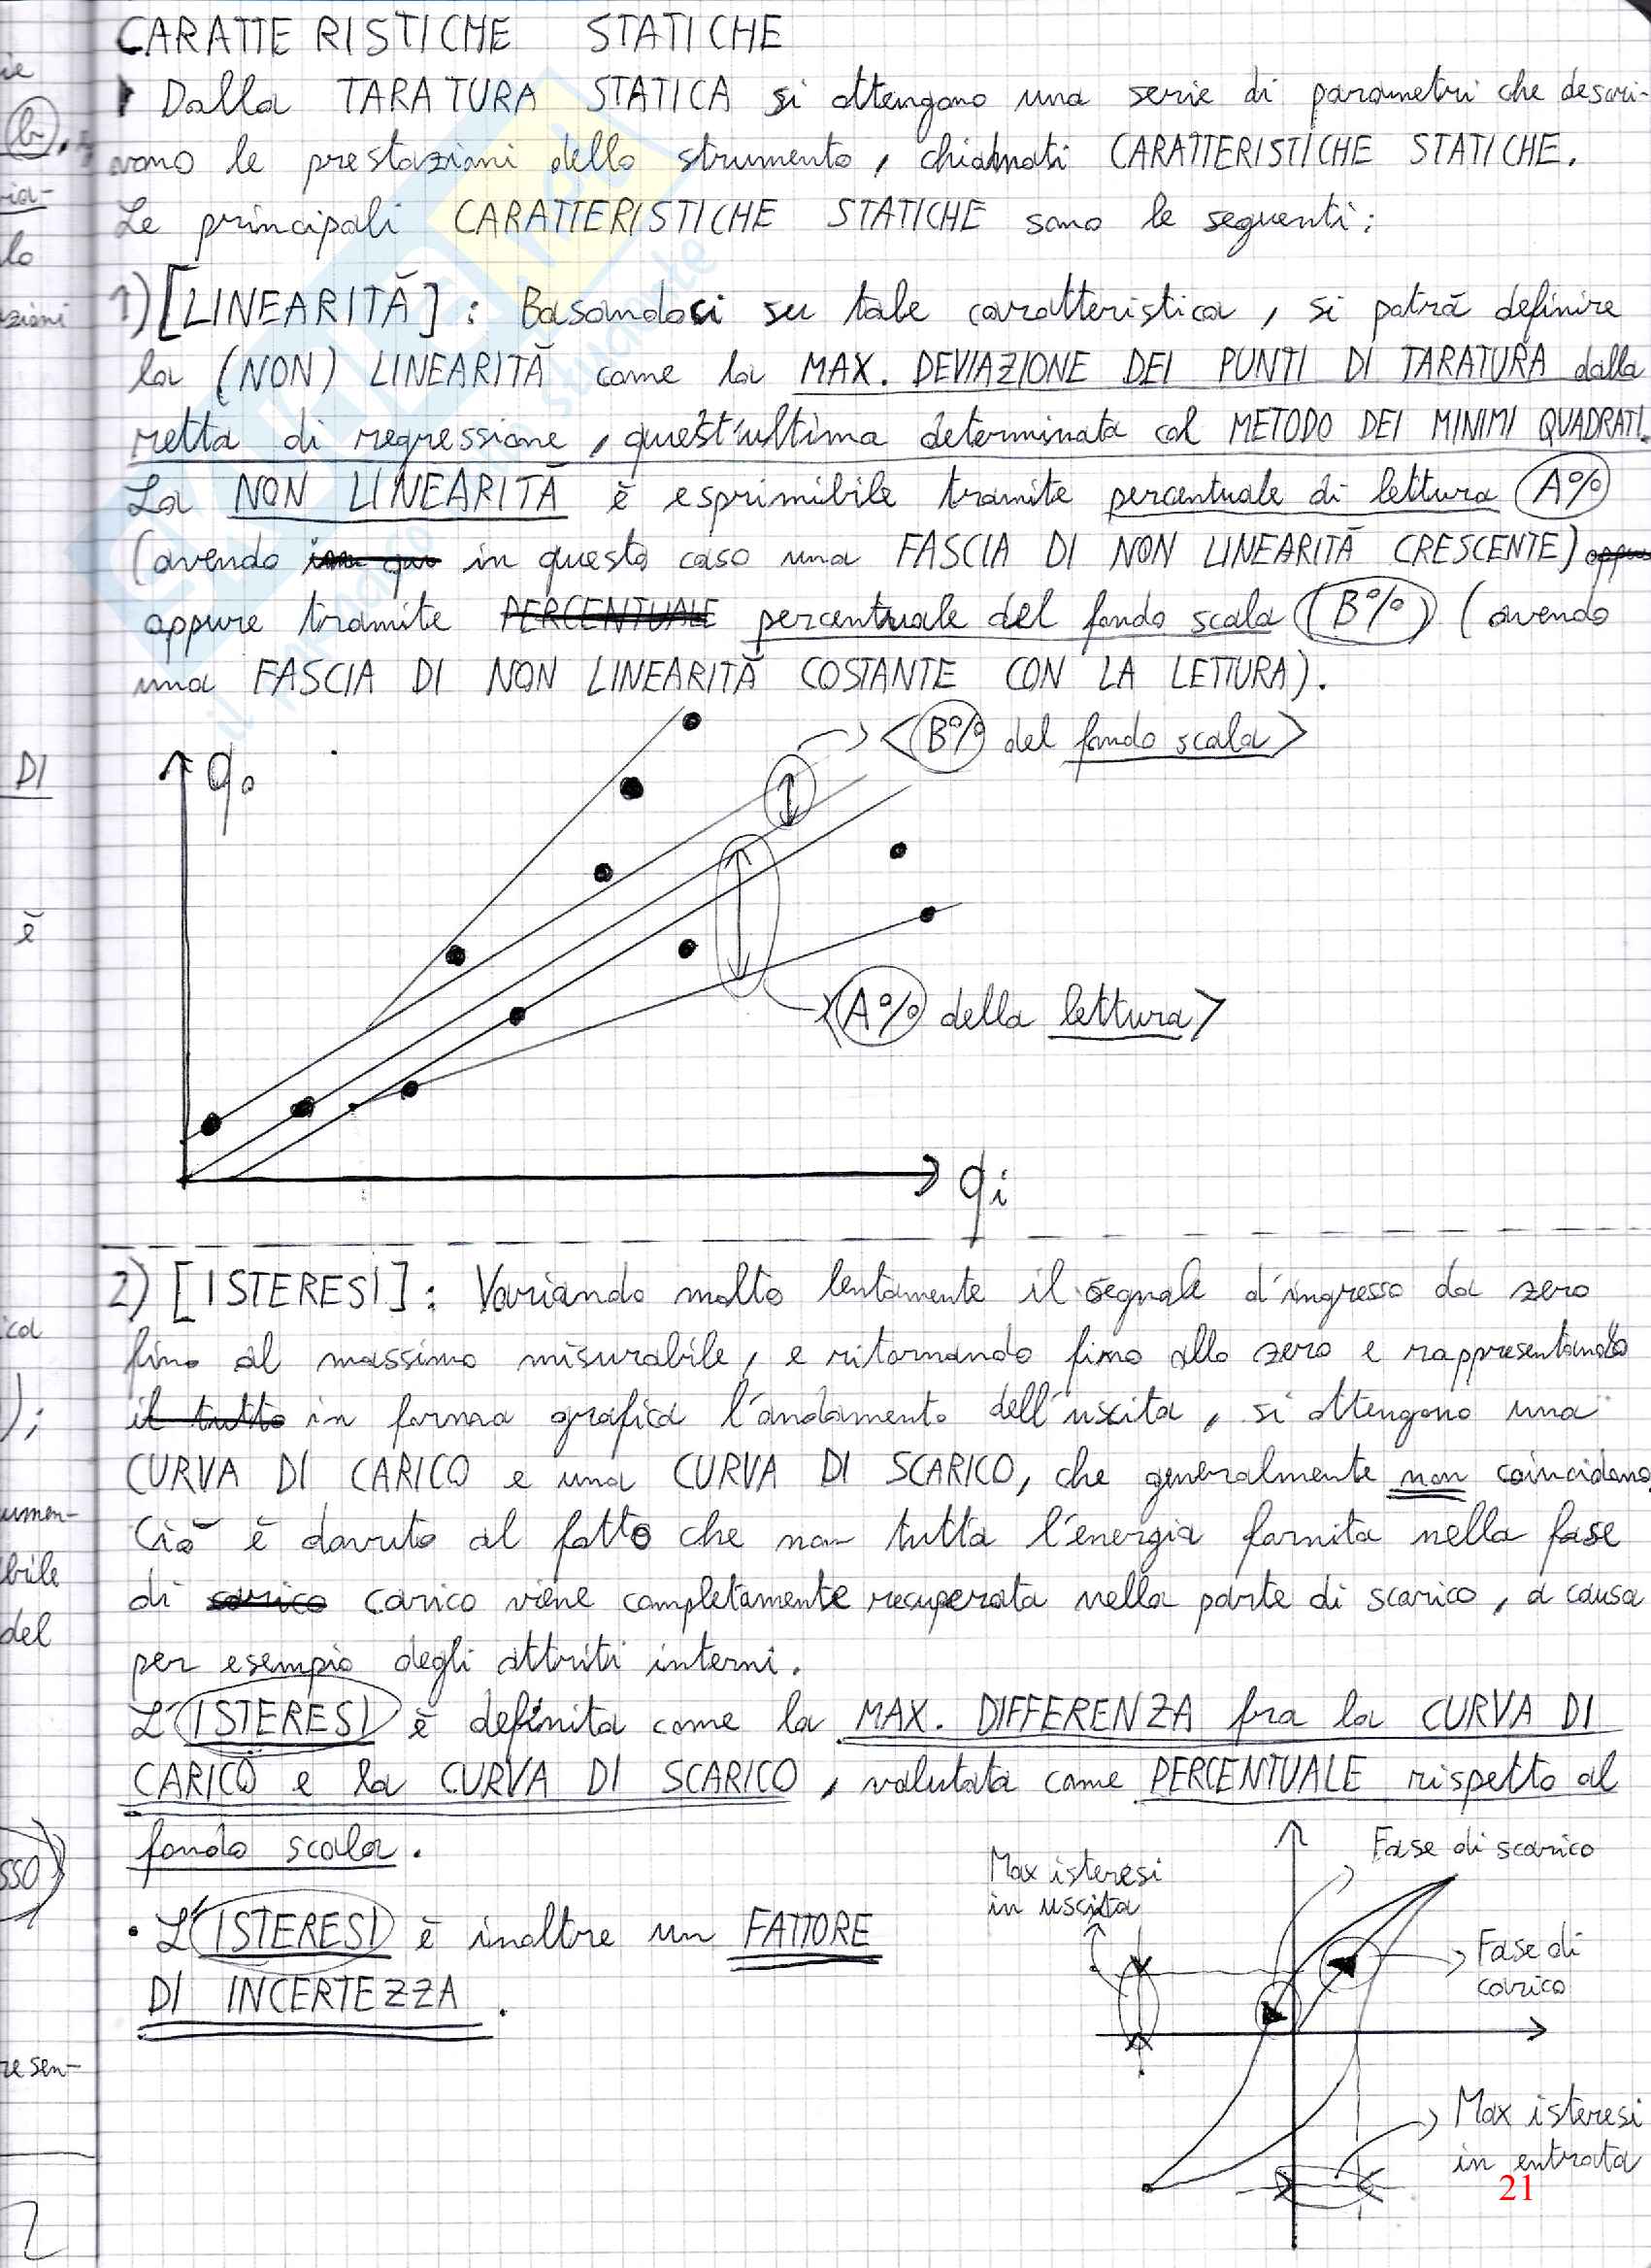 CARATTERISTICHE STATICHE
Dalla TARATURA STATICA si ottengono una serie di parametri che descri-
vono le prestazioni dello strumento, chiamati CARATTERISTICHE STATICHE.
Le principali CARATTERISTICHE STATICHE sono le seguenti:
1) [LINEARITÀ]: Basandoci su tale caratteristica, si potrà definire
la (NON) LINEARITÀ come la MAX. DEVIAZIONE DEI PUNTI DI TARATURA dalla
retta di regressione, quest'ultima determinata col METODO DEI MINIMI QUADRATI.
La NON LINEARITÀ è esprimibile tramite percentuale di lettura (A%)
(avendo in questo caso una FASCIA DI NON LINEARITÀ CRESCENTE)
oppure tramite PERCENTUALE percentuale del fondo scala (B%) (avendo
una FASCIA DI NON LINEARITÀ COSTANTE CON LA LETTURA).
<B% del fondo scala>
qo
<A% della lettura>
qi
2) [ISTERESI]: Variando molto lentamente il segnale d'ingresso da zero
fino al massimo misurabile, e ritornando fino allo zero e rappresentando
il tutto in forma grafica l'andamento dell'uscita, si ottengono una
CURVA DI CARICO e una CURVA DI SCARICO, che generalmente non coincidono.
Ciò è dovuto al fatto che non tutta l'energia fornita nella fase
di carico viene completamente recuperata nella parte di scarico, a causa
per esempio degli attriti interni.
L'ISTERESI è definita come la MAX. DIFFERENZA fra la CURVA DI
CARICO e la CURVA DI SCARICO, valutata come PERCENTUALE rispetto al
fondo scala.
• L'ISTERESI è inoltre un FATTORE
DI INCERTEZZA.
Fase di scarico
Max isteresi
in uscita
Fase di
carico
Max isteresi
in entrata
21
ie
b
ria-
lo
zioni
DI
è
ica
);
umen-
bile
del
sso)
resen-